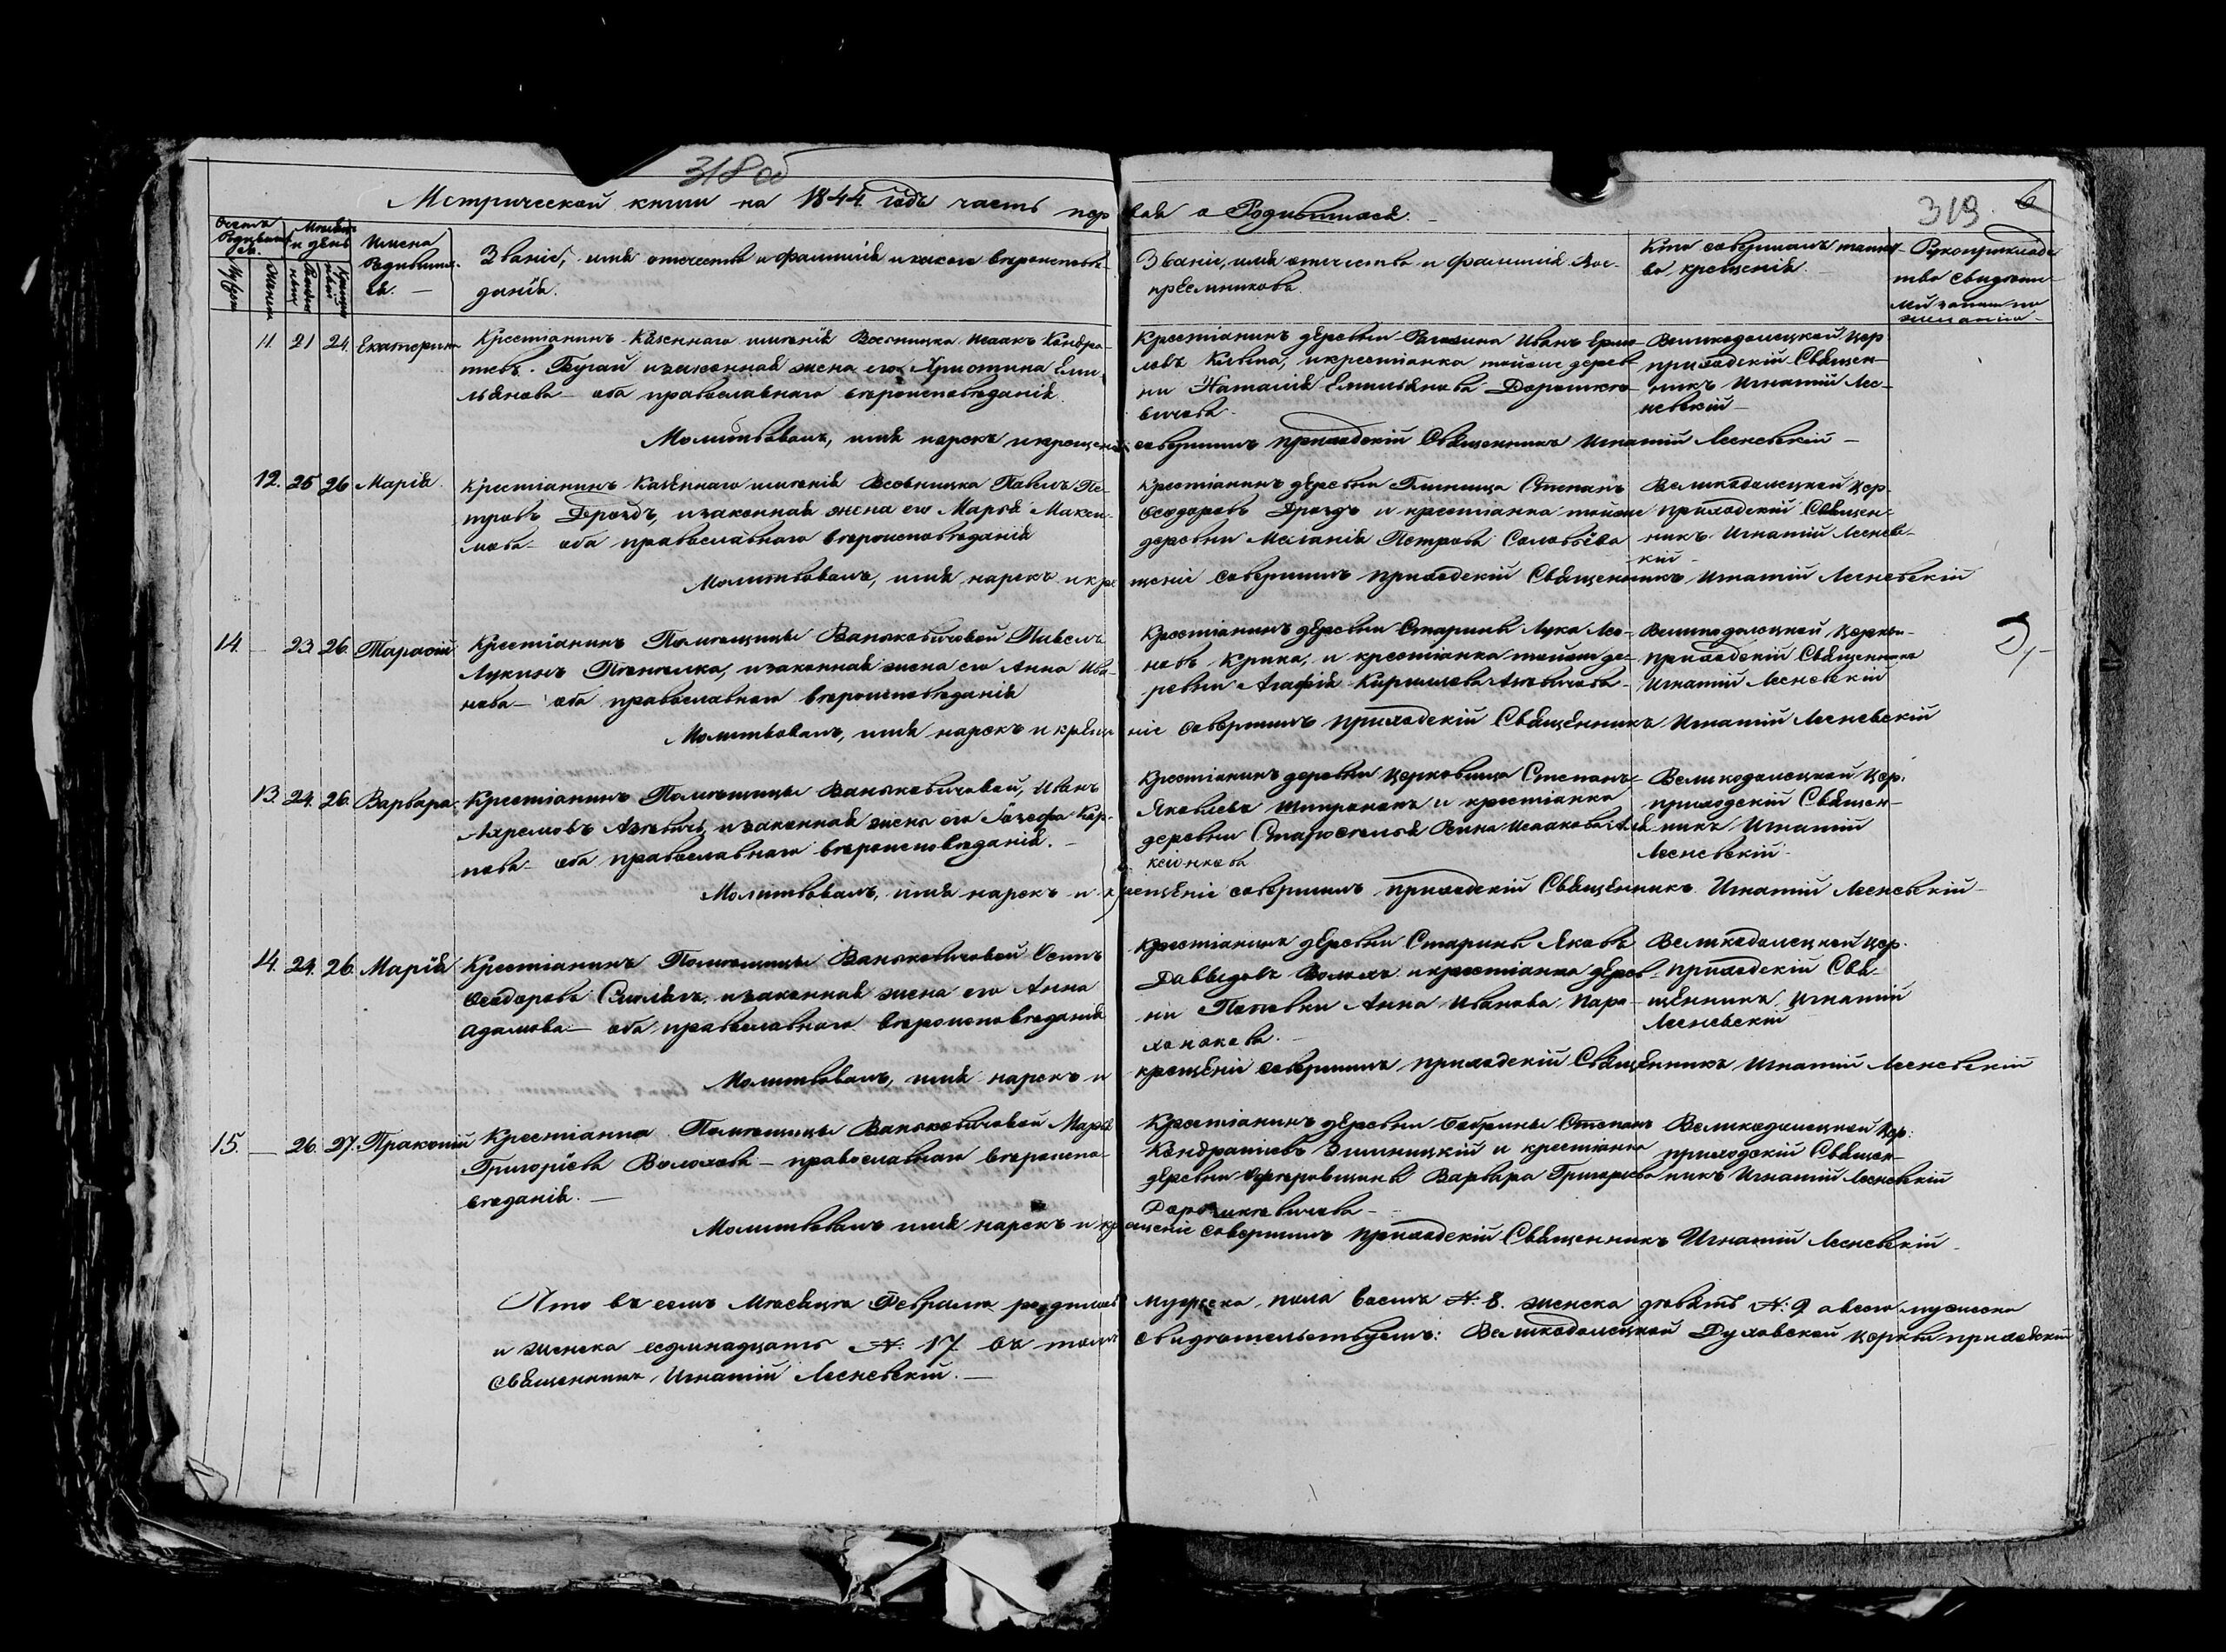 318 об
Метрической книги на 1844 годъ часть пер
вая о Родившихся.
319. 6
Счетъ Родившихся.
Мужеск
Женск
Месяцъ и день
Рожденія
Крещенія
Имена Родившихся.
Званіе, имя отечество и фамилія и какого вероисповеданія.
Званіе, имя отечество и фамилія Воспреемниковъ.
Кто совершалъ таинство крещенія.
Рукоприкладство свидетелей записи по желанію
11. 21 24. Екатерина
Крестіанинъ Казеннаго именія Весницка Исаакъ Кондра-
тіевъ Бугай и законная жена его Христина Еми-
льянова оба православнаго вероисповеданія.
Крестіанинъ деревни Рагозина Иванъ Ермо-
ловъ и крестіанка тойже дерев-
ни Наталія Емильянова Дорошкевичова
Великодолецкой Цер
приходскій Священ-
никъ Игнатій Лес-
невскій
Молитвовалъ, имя нарекъ и крещеніе совершилъ приходскій Священникъ Игнатій Лесневскій
12. 25 26 Марія
Крестіанинъ Казеннаго именія Весницка Павелъ Пе-
тровъ Дроздъ, и законная жена его Марья Макси-
мова оба православнаго вероисповеданія
Крестіанинъ деревни Степанъ
Феодоровъ Дроздъ и крестіанка тойже
деревни Меланія Петрова Соловьёва
Великодолецкой Цер-
приходскій Священ-
никъ Игнатій Леснев-
скій
Молитвовалъ, имя нарекъ и крещеніе совершилъ приходскій Священникъ Игнатій Лесневскій
14. — 23. 26. Тарасій
Крестіанинъ Помещицы Ваньковичовой Павелъ
Лукинъ и законная жена его Анна Ива-
нова оба православнаго вероисповеданія
Крестіанинъ деревни Старины Лука Лео-
новъ Крика, и крестіанка тойже де-
ревни Агафія Кирилова
Великодолецкой Церкви
приходскій Священникъ
Игнатій Лесневскій
Молитвовалъ, имя нарекъ и крещеніе совершилъ приходскій Священникъ Игнатій Лесневскій
13. 24. 26. Варвара
Крестіанинъ Помещицы Ваньковичовой, Иванъ
Ахремовъ и законная жена его Іозефа Кар-
пова оба православнаго вероисповеданія.
Крестіанинъ деревни Церковища Степанъ
Яковлевъ и крестіанка
деревни Исаакова
Великодолецкой Цер.
приходскій Священ-
никъ Игнатій
Лесневскій
Молитвовалъ, имя нарекъ и крещеніе совершилъ приходскій Священникъ Игнатій Лесневскій
14. 24. 26. Марія
Крестіанинъ Помещицы Ваньковичовой Осипъ
Феодоровъ и законная жена его Анна
Адамова оба православнаго вероисповеданія
Крестіанинъ деревни Старины Яковъ
Давыдовъ и крестіанка дерев-
ни Поповки Анна Иванова
Великодолецкой Цер.
приходскій Свя-
щенникъ Игнатій
Лесневскій
Молитвовалъ, имя нарекъ и крещеніе совершилъ приходскій Священникъ Игнатій Лесневскій
15. — 26. 27. Пракопій
Крестіанка Помещицы Ваньковичовой Марья
Григоріева Волохова православнаго вероиспо-
веданія.
Крестіанинъ деревни Бобрины Степанъ
Кондратіевъ Зинницкій и крестіанка
деревни Варвара Григорьева
Дорошкевичова
Великодолецкой Цер.
приходскій Священ-
никъ Игнатій Лесневскій
Молитвовалъ имя нарекъ и крещеніе совершилъ приходскій Священникъ Игнатій Лесневскій
Что въ семъ Месяце Феврале родилось мужеска пола восмъ №: 8. женска девять №: 9 а всего мужеска
и женска седмнадцать №: 17 въ томъ свидетельствуетъ: Великодолецкой Духовской церкви приходскій
Священникъ Игнатій Лесневскій.